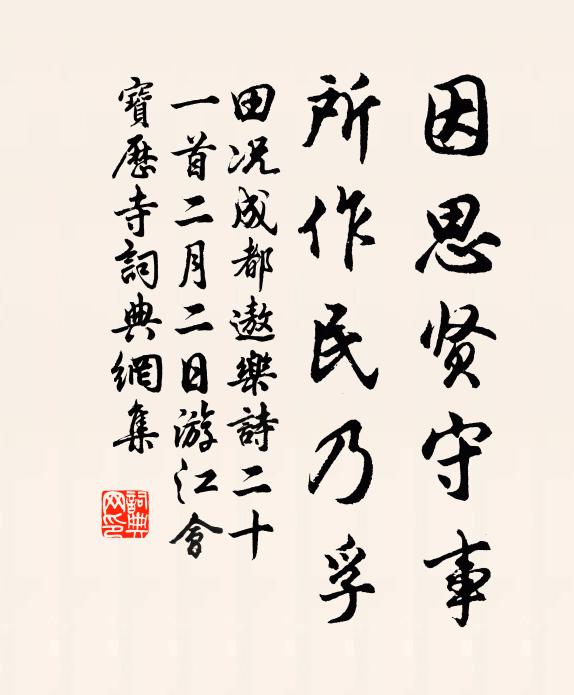 因思贤守事
所作民乃孚
田况成都遨樂詩二十
一首二月二日游江會
寶歷寺詞典網集
詞典网印